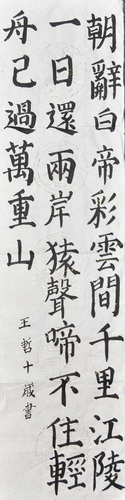 朝辭白帝彩雲間千里江陵
一日還兩岸猿聲啼不住輕
舟已過萬重山
王哲十歲書